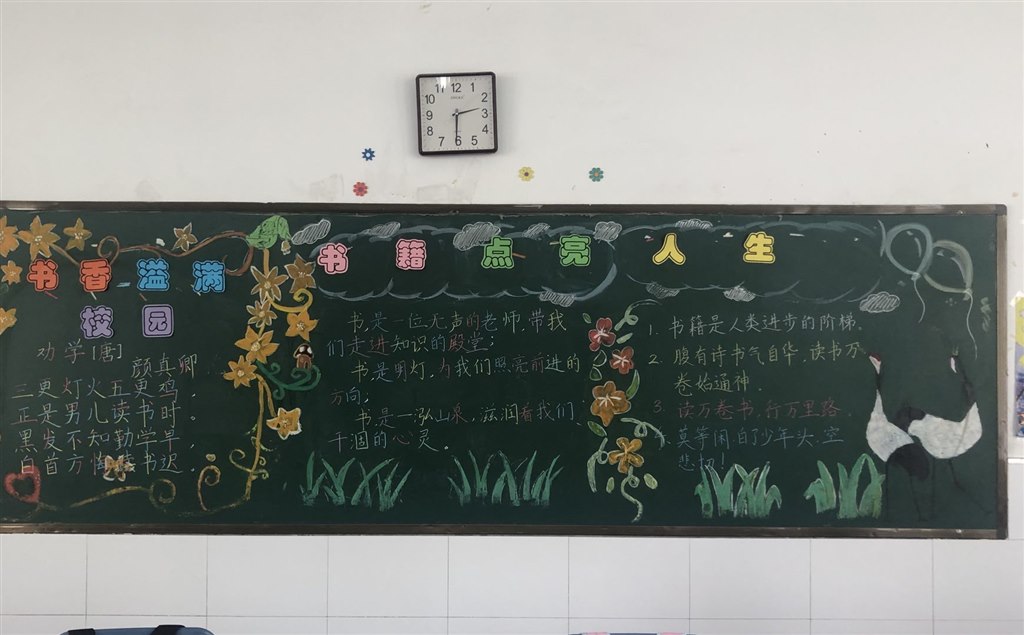 11 12 1
10 2
9 3
8 4
7 6 5
书香溢满
校园
劝学[唐]
颜真卿
三更灯火五更鸡,
正是男儿读书时。
黑发不知勤学早,
白首方悔读书迟。
书籍点亮人生
书是一位无声的老师,带我
们走进知识的殿堂;
书是明灯,为我们照亮前进的
方向;
书是一泓山泉,滋润着我们
干涸的心灵。
1. 书籍是人类进步的阶梯。
2. 腹有诗书气自华,读书万
卷始通神。
3. 读万卷书,行万里路。
莫等闲白了少年头,空
悲切!